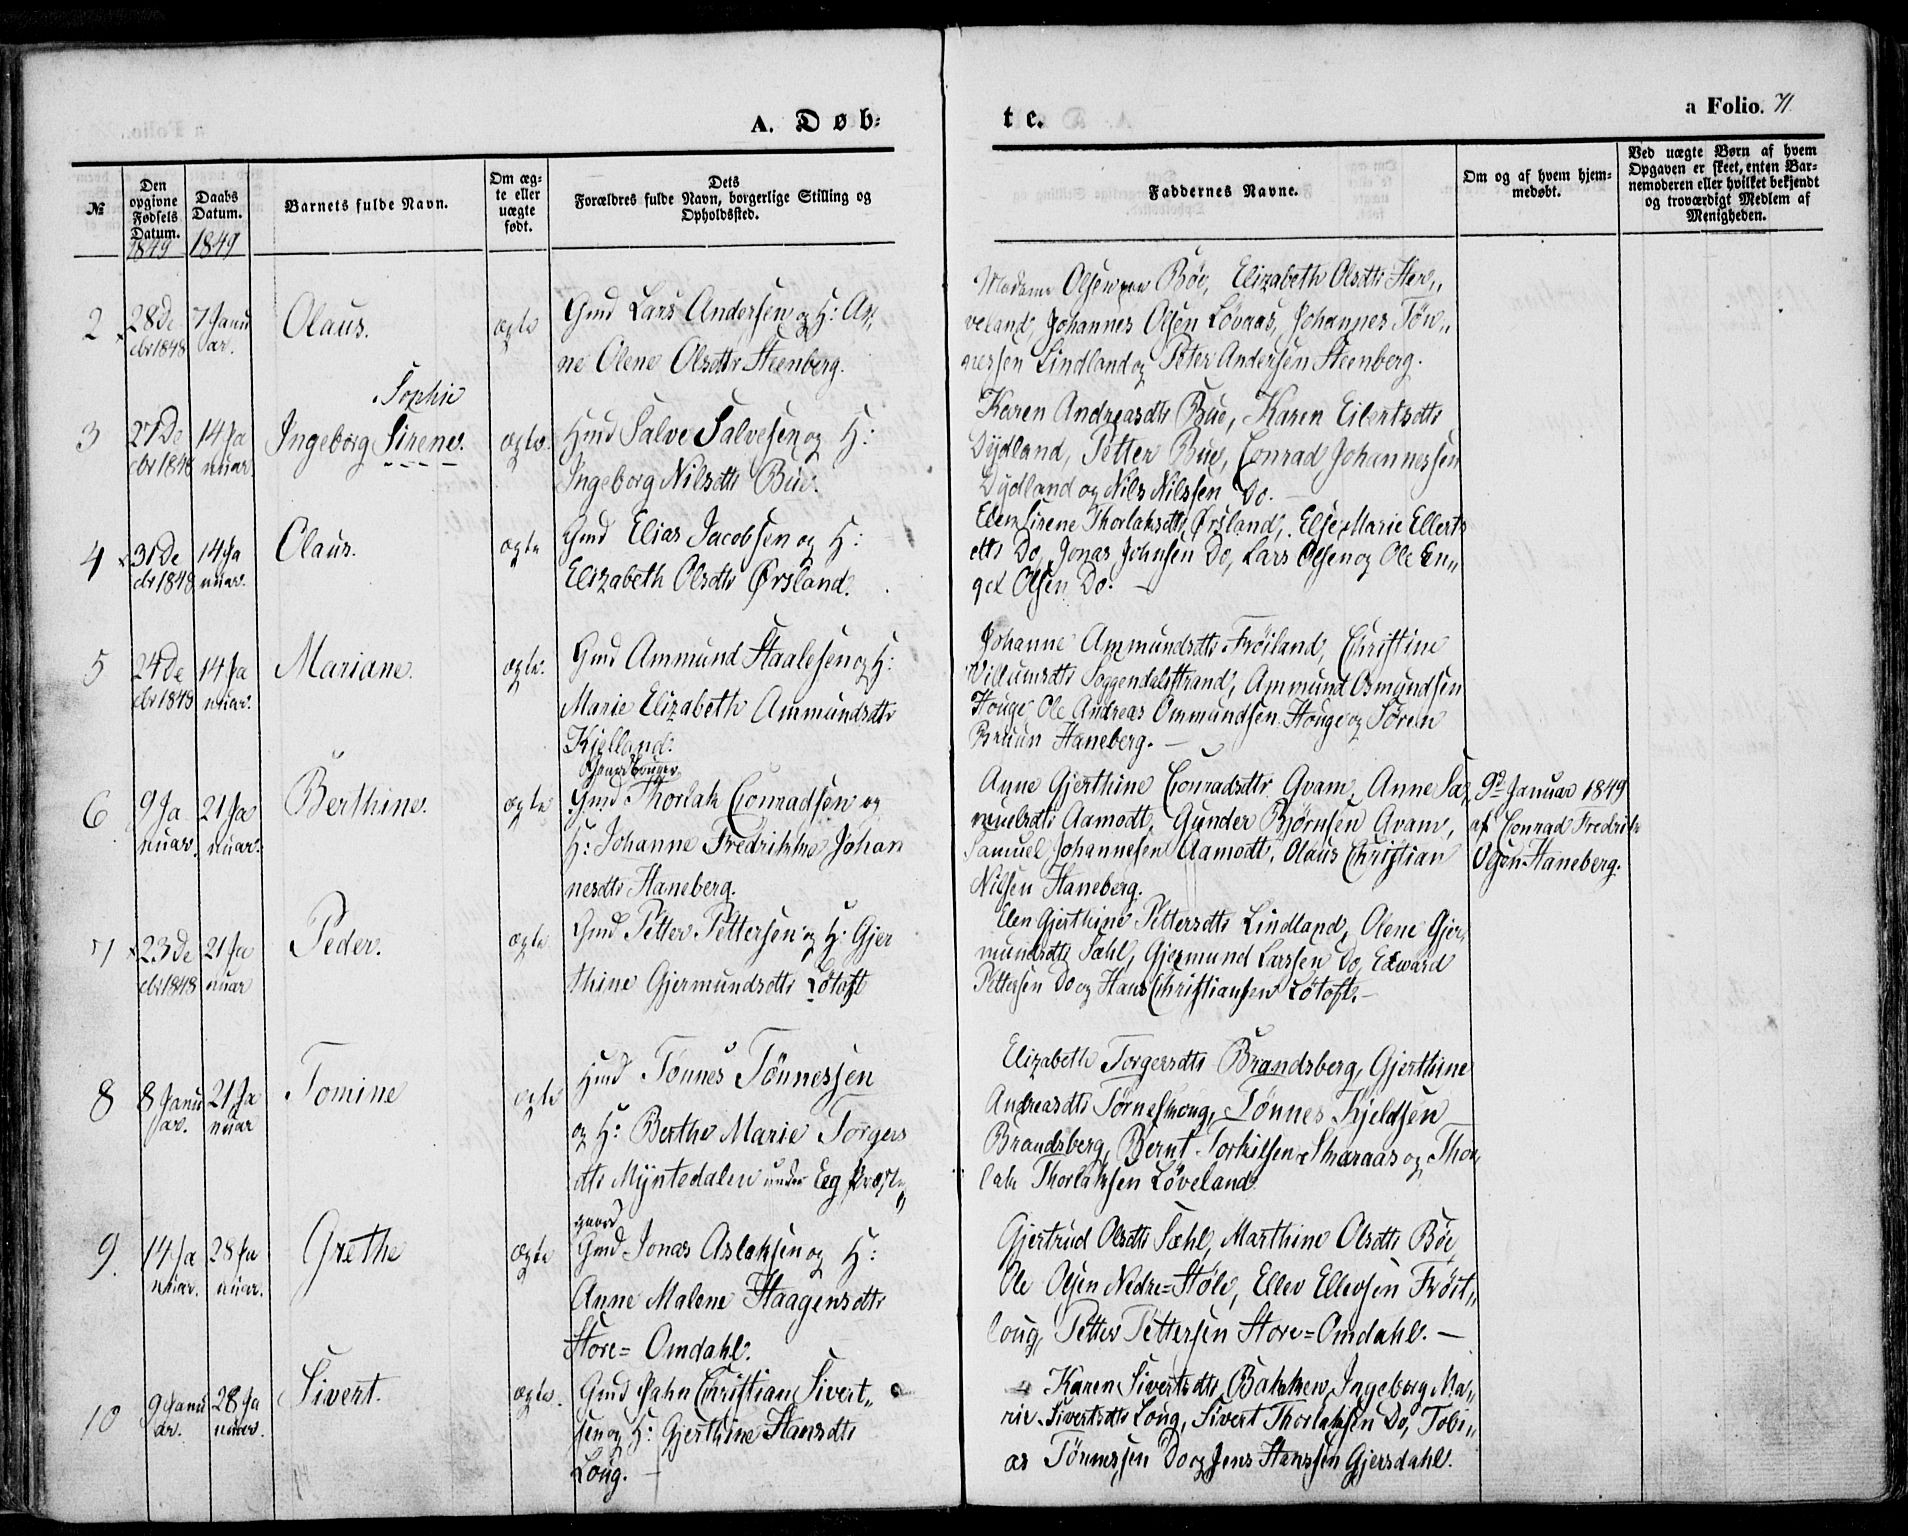 A. Døb=
te.
a Folio. 71
№
Den opgivne Fødsels Datum.
1849
Daabs Datum.
1849
Barnets fulde Navn.
Om æg-te eller uægte født.
Dets Forældres fulde Navn, borgerlige Stilling og Opholdssted.
Faddernes Navne.
Om og af hvem hjem-medøbt.
Ved uægte Børn af hvem Opgaven er skeet, enten Bar-nemoderen eller hvilket bekjendt og troværdigt Medlem af Menigheden.
2
28 De
cbr 1848
7 Janu
ar.
Olaus.
ægte
Gmd Lars Andersen og H: An,
ne Olene Olsdtr Steenberg.
Madame Olsen paa Bøe, Elizabeth Olsdtr Her,,
veland, Johannes Olsen Løvaas, Johannes Tøn,,
nessen Lindland og Peter Andersen Steenberg.
3
27 De
cbr 1848
14 Ja
nuar
Sophie
Ingeborg Sirene.
ægte.
Hmd Salve Salvesen og H:
Ingeborg Nilsdtr Bue.
Karen Andreasdtr Bue, Karen Eilertsdtr
Dydland, Petter Bue, Conrad Johannessen
Dydland og Nils Nilssen Do.
4
31 De
cbr 1848
14 Ja
nuar.
Claus.
ægte
Gmd Elias Jacobsen og H:
Elizabeth Olsdtr Ørsland.
Elen Sirene Thorlaksdtr Ørsland, Else Marie Ellerts
dtr Do, Jonas Johnsen Do, Lars Olsen og Ole En,,
gel Olsen Do. —
5
24 De
cbr 1848
14 Ja
nuar.
Mariane.
ægte.
Gmd Ammund Staalesen og H:
Marie Elizabeth Ammundsdtr
Kjelland.
Johanne Ammundsdtr Frøiland, Christine
Villumsdtr Soggendalsstrand, Ammund Osmundsen
Houge Ole Andreas Ommundsen Houge og Søren
Bruun Haneberg. —
6
9 Ja
nuar.
21 Ja
nuar.
Berthine.
ægte
Gmd Thorlak Conradsen og
H: Johanne Fredrikke Johan
nesdtr Haneberg.
Anne Gjerthine Conradsdtr Qvam, Anne Sa,,
muelsdtr Aamodt, Gunder Bjørnsen Qvam,
Samuel Johannesen Aamodt, Olaus Christian
Nilsen Haneberg.
9de Januar 1849
af Conrad Fredrik
Olsen Haneberg.
7
23 De
cbr 1848
21 Ja
nuar
Peder.
ægte
Gmd Petter Pettersen og H: Gjer
thine Gjermundsdtr Løtoft
Elen Gjerthine Pettersdtr Lindland, Olene Gjer,
mundsdtr Sæhl, Gjermund Larssen Do, Edward
Pettersen Do og Hans Christiansen Løtoft. —
8
8 Janu
ar.
21 Ja
nuar
Tomine
ægte
Hmd Tønnes Tønnessen
og H: Berthe Marie Torgers
dtr Myntedalen under Eeg Præste,,
gaard
Elizabeth Torgersdtr Brandsberg, Gjerthine
Andreasdtr Tørneskoug, Tønnes Kjeldsen
Brandsberg, Bernt Torkilsen Skaraas og Thor,
lak Thorlaksen Løveland
9.
14 Ja
nuar.
28 Ja
nuar.
Grethe
ægte
Gmd Jonas Aslaksen og H:
Anne Malene Haagensdtr
Store= Omdahl.
Gjertrud Olsdtr Sæhl, Marthine Olsdtr Bøe
Ole Olsen Nedre=Støle, Ellev Ellevsen Frøit,,
loug, Petter Pettersen Store=Omdahl. —
10
9 Janu
ar.
28 Ja
nuar.
Sivert.
ægte.
Gmd Jahn Christian Sivert,,
sen og H: Gjerthine Hansdtr
Loug. —
Karen Sivertsdtr Bakken, Ingeborg Ma,,
rie Sivertsdtr Loug, Sivert Thorlaksen Do, Tobi,,
as Tønnessen Do og Jens Hanssen Gjersdahl.